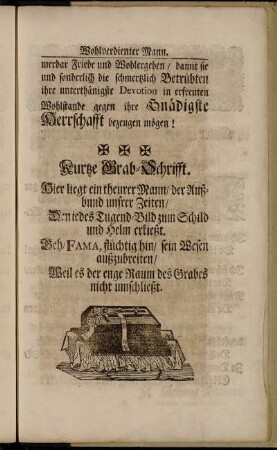 Wohlverdienter Mann.
werdar Friede und Wohlergehen / damit sie
und sonderlich die schmertzlich Betrübten
ihre unterthänigste Devotion in erfreuten
Wohlstande gegen ihre Gnädigste
Herrschafft bezeugen mögen!
Kurtze Grab-Schrifft.
Hier liegt ein theurer Mann / der Auß-
bund unsrer Zeiten /
Den iedes Tugend-Bild zum Schild
und Helm erließt.
Geh / FAMA, flüchtig hin / sein Wesen
außzubreiten /
Weil es der enge Raum des Grabes
nicht umschließt.